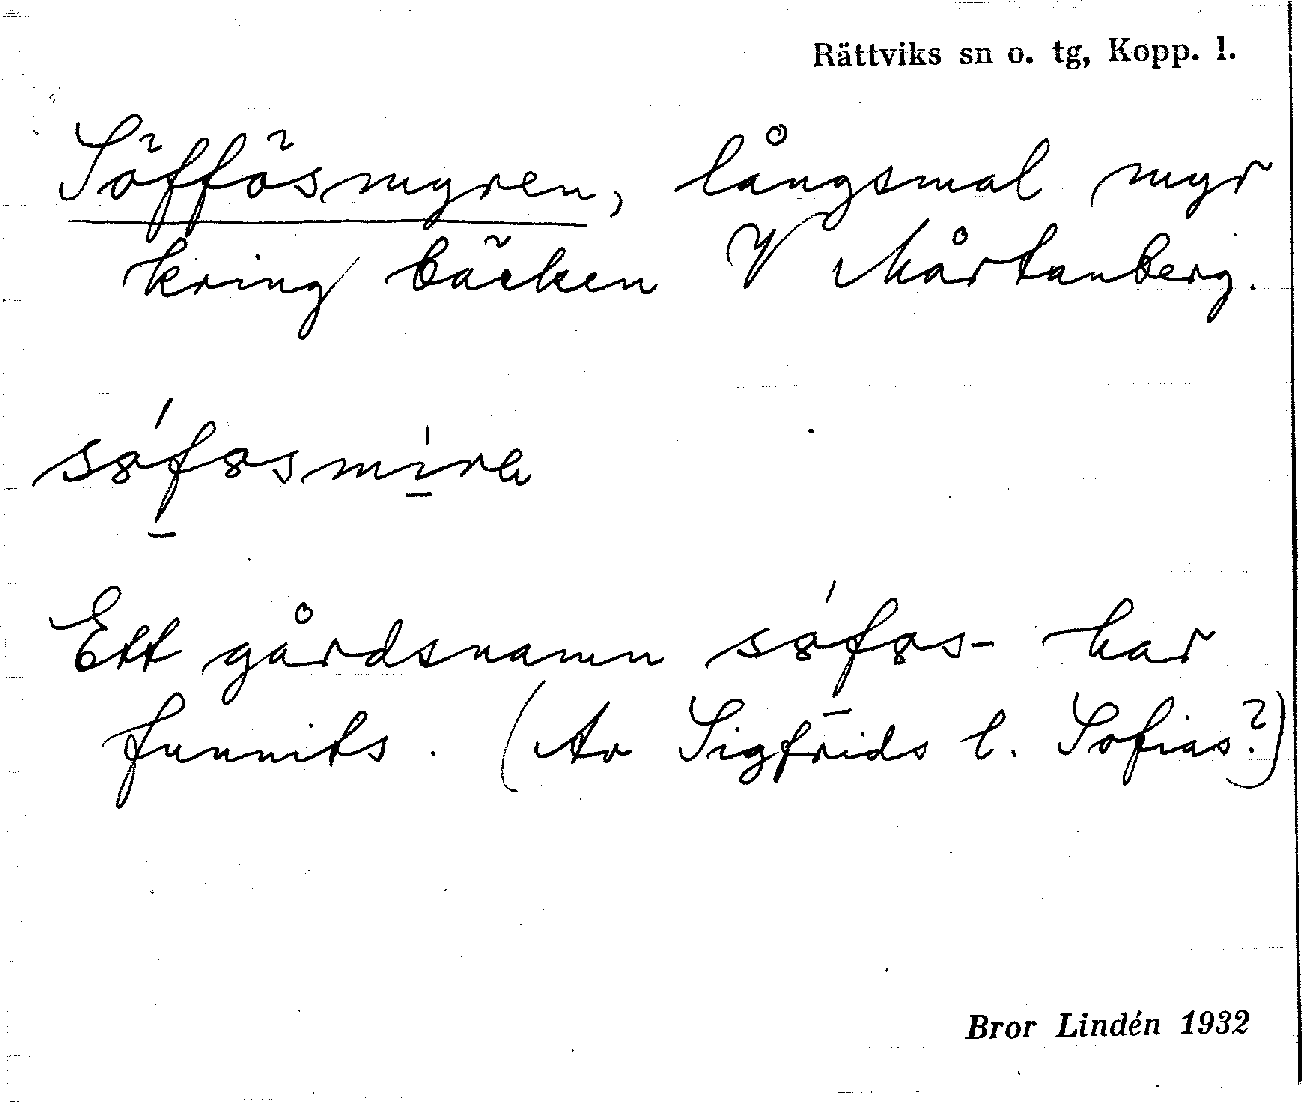 Rättviks sn o. tg, Kopp. l.
Söffösmyren, långsmal myr
kring bäcken V Mårtanberg.
sófosmìra
Ett gårdsnamn sófos- har
funnits. (Av Sigfrids l. Sofias?)
Bror Lindén 1932